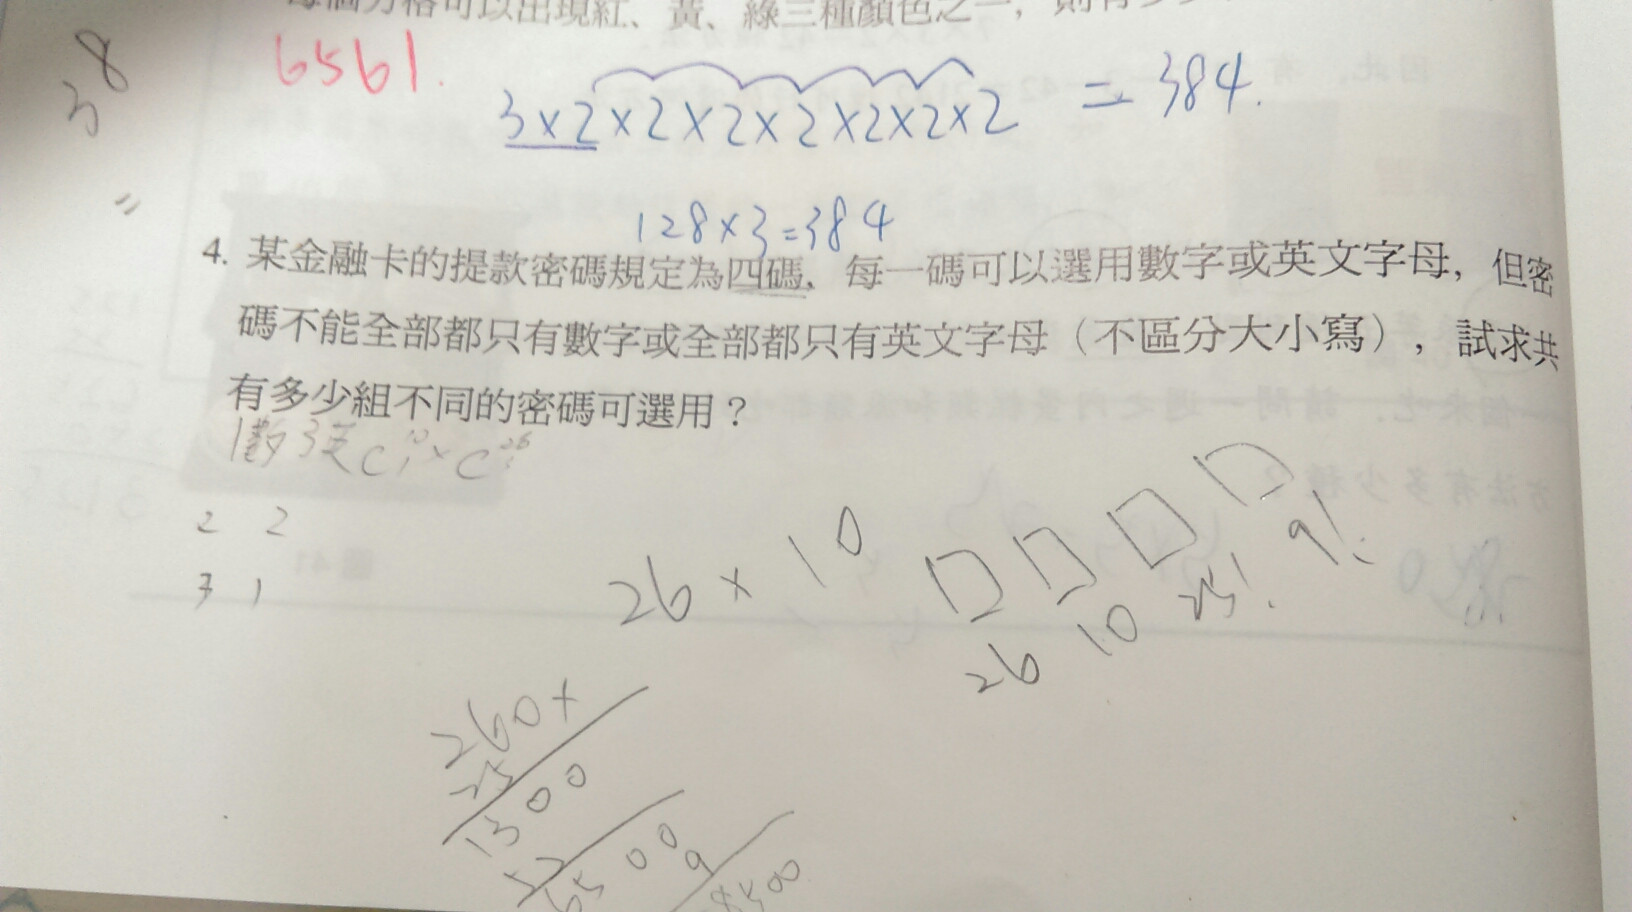 每個方格可以出現紅、黃、綠三種顏色之一，則有多少
3⁸
6561.
3×2×2×2×2×2×2×2 = 384.
=
128×3=384
4. 某金融卡的提款密碼規定為四碼，每一碼可以選用數字或英文字母，但密
碼不能全部都只有數字或全部都只有英文字母（不區分大小寫），試求共
有多少組不同的密碼可選用？
1數3英 C₁¹⁰×C₃²⁶
2 2
3 1
26×10
□ □ □ □
26 10 25! 9!
260×
25
1300
52
6500
9
58500